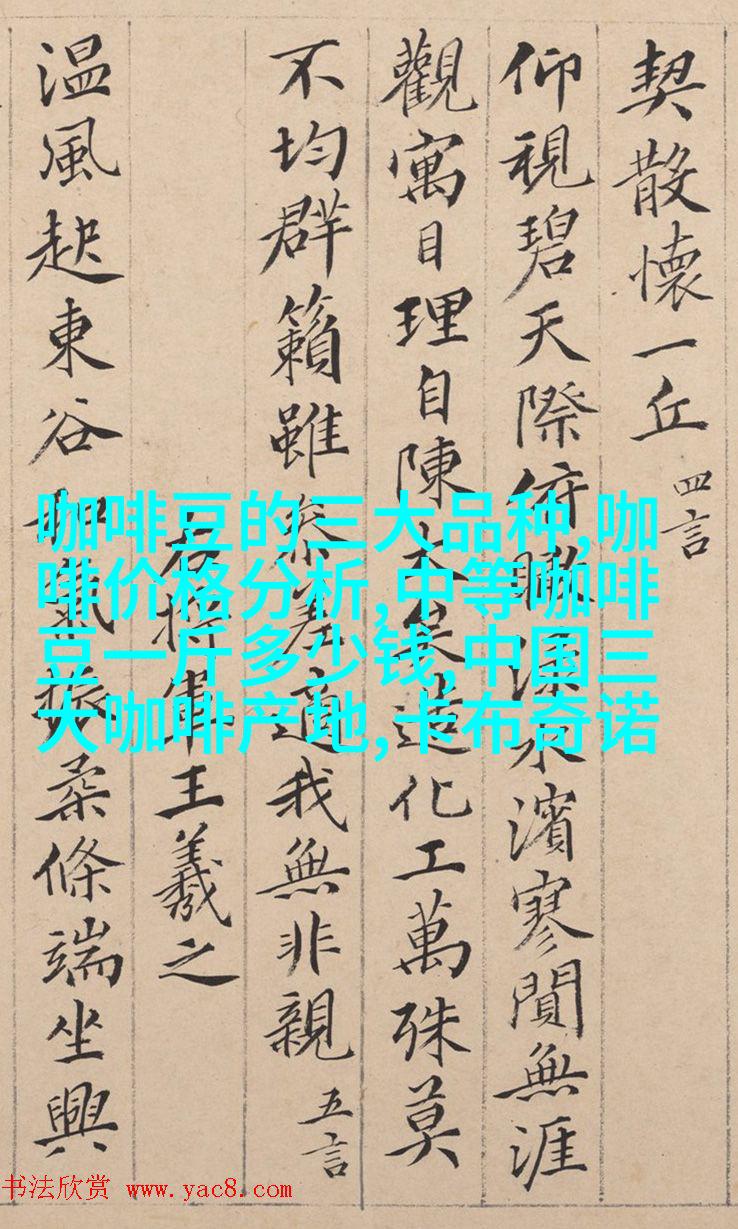 契散懷一丘 四言
仰視碧天際俯瞰淥水濱寥閴無涯
觀寓目理自陳大矣造化工萬殊莫
不均群籟雖參差適我無非親 五言
右將軍王羲之
温風起東谷和氣振柔條端坐興
咖啡豆的三大品种,咖
啡价格分析,中等咖啡
豆一斤多少钱,中国三
大咖啡产地,卡布奇诺
书法欣赏 www.yac8.com